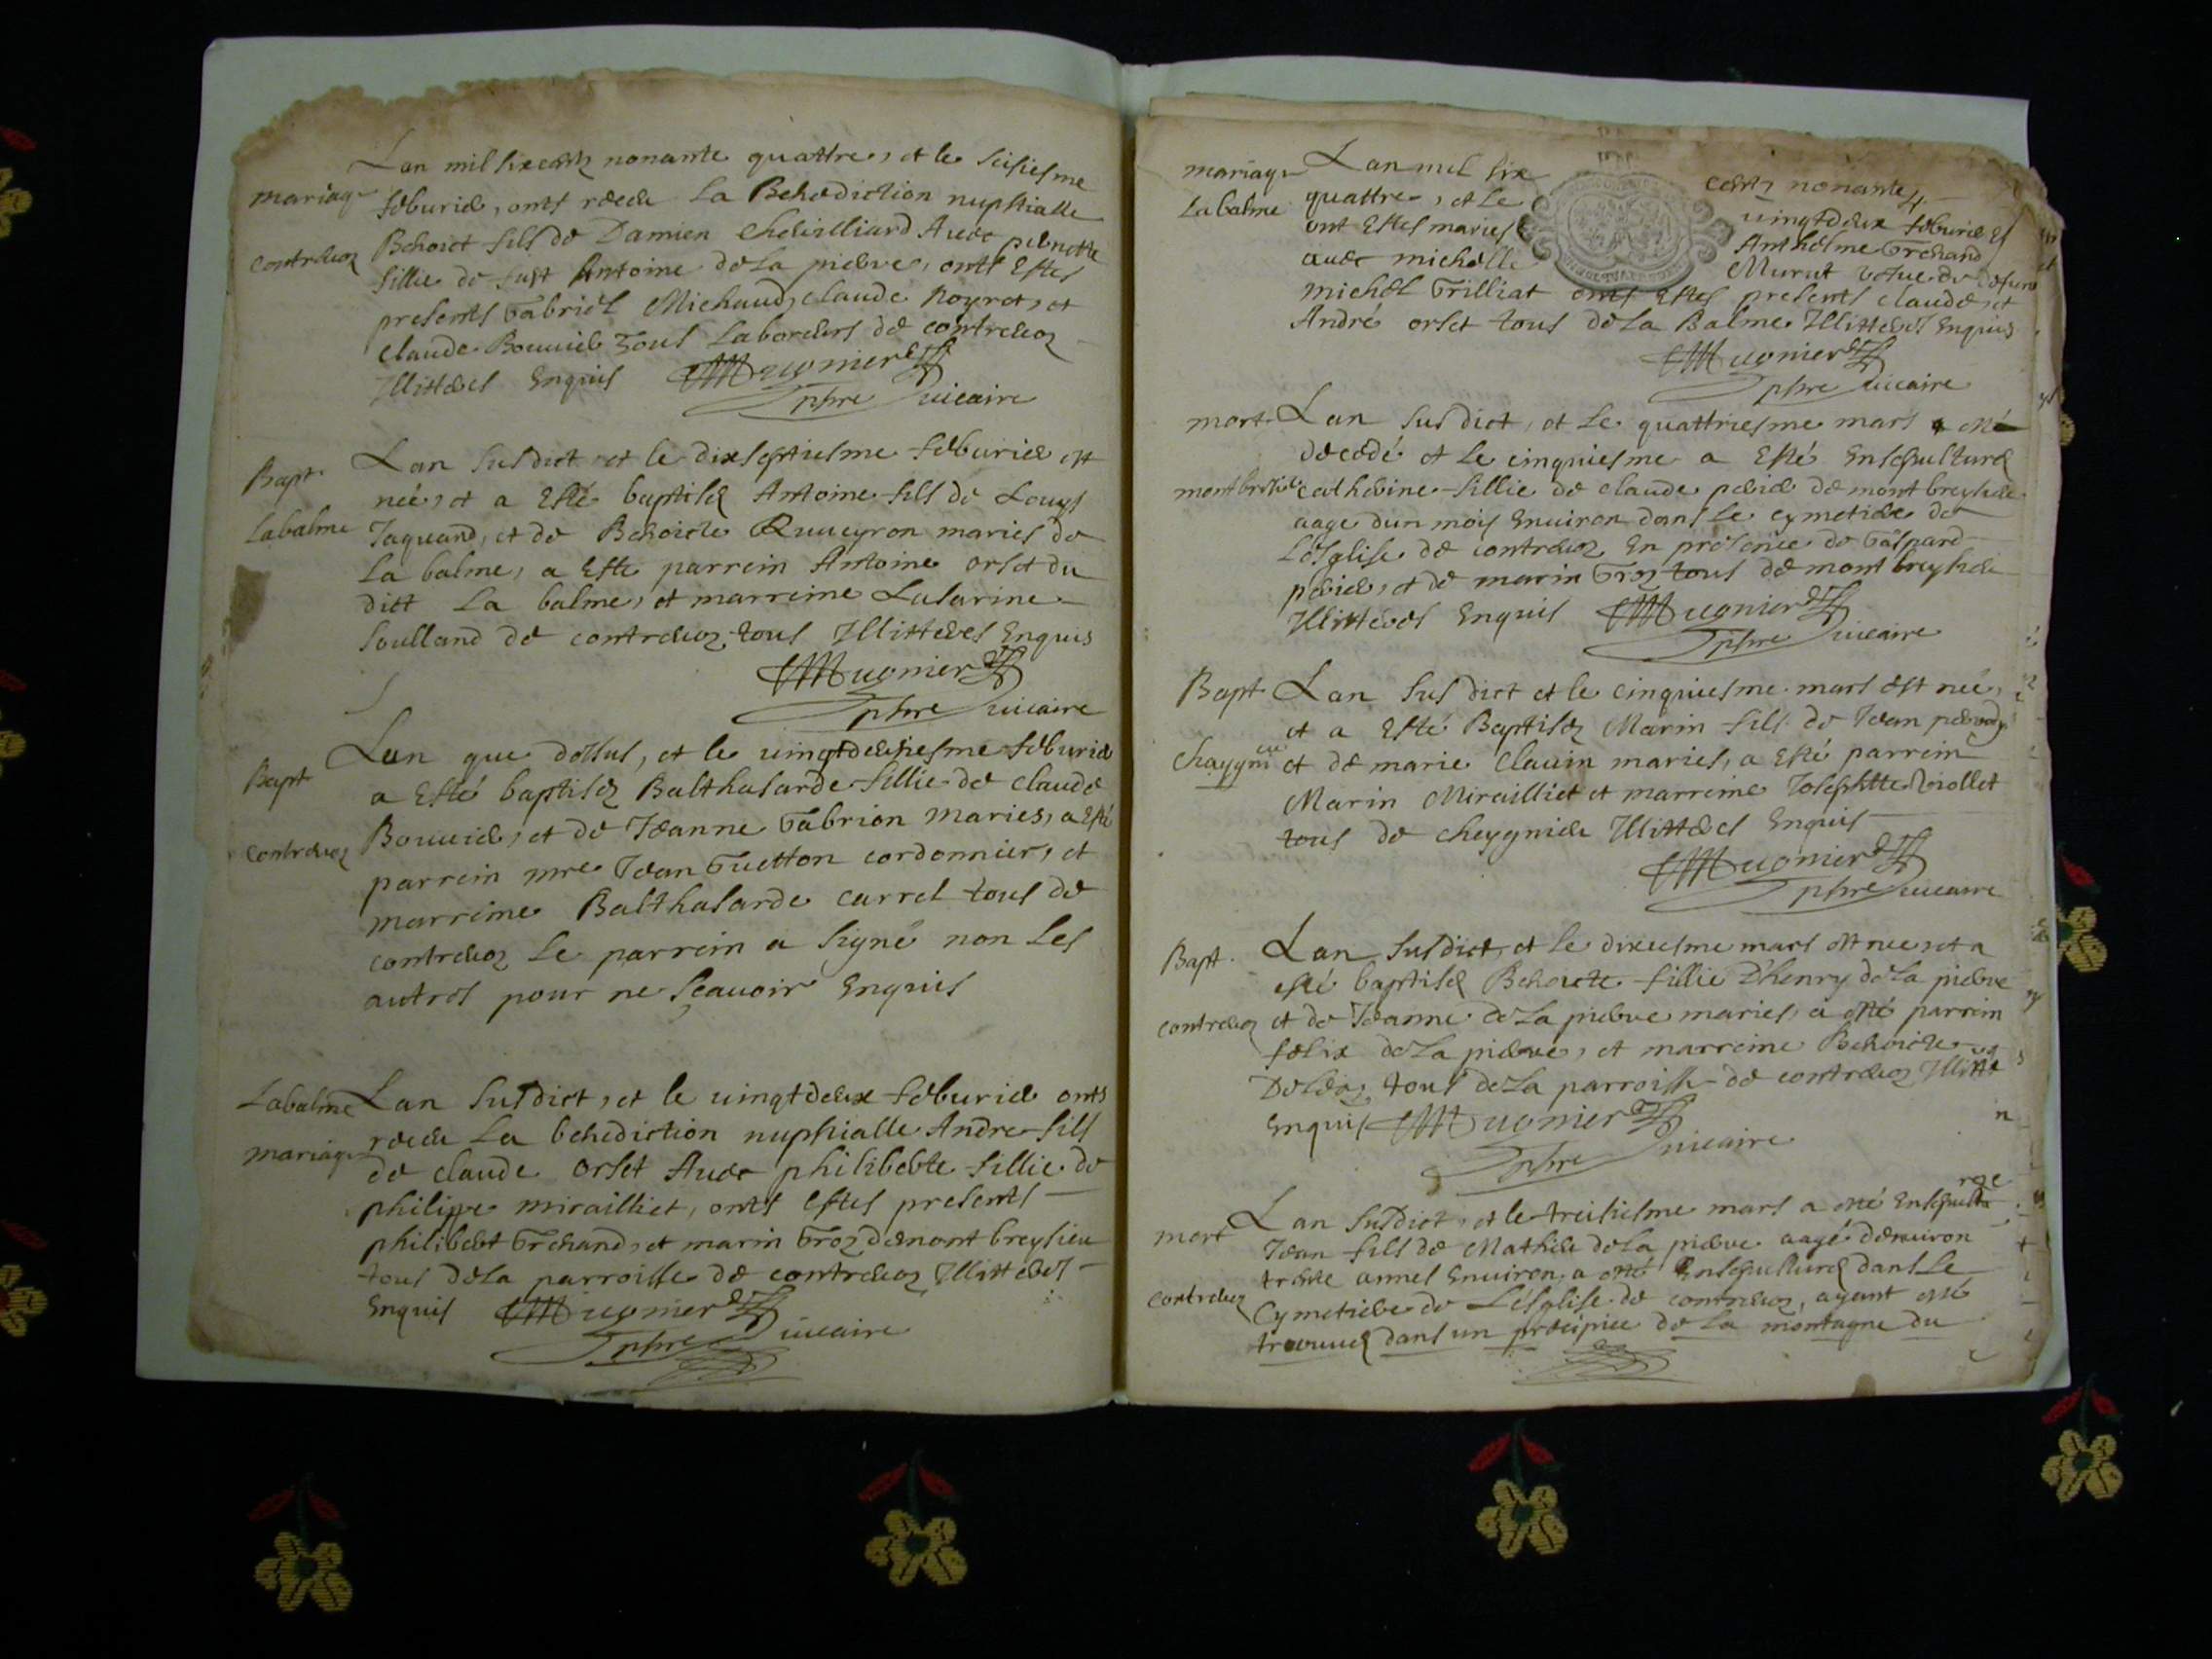 Lan mil six cents nonante quattre, et le seisiesme
mariage feburier, onts receu la Benediction nuptialle
Benoict fils de Damien Chevilliard Avec pernette
contrevoz fillie de fust Antoine de la pierre, onts Estes
presents Gabriel Michaud, claude Royret, et
claude Bouvier Tous laboreurs de contrevoz
Illitteres Enquis Mugnier
pbre vicaire
Bapt. Lan susdict et le dixseptiesme feburier est
née, et a Esté baptisez Antoine fils de Louys
Labalme Jaquand, et de Benoicte Ruveyron maries de
la balme, a Esté parrein Antoine orset du
dict la balme, et marreine Lasarine
soulland de contrevoz tous Illitteres Enquis
Mugnier
pbre vicaire
Lan que dessus, et le vingtdeusiesme feburier
Bapt a Esté baptisez Balthasarde fillie de claude
Bouvier, et de Jeanne Gabrion maries, a Esté
contrevoz parrein mre Jean Guetton cordonnier, et
marreine Balthasarde carrel tous de
contrevoz le parrein a signé non les
autres pour ne sçavoir Enquis
Labalme Lan susdict, et le vingtdeux feburier onts
receu la benediction nuptialle Andre fils
mariage de claude orset Avec philiberte fillie de
philippe mirailliet, onts estes presents
philibert Grenand, et marin Groz de mont breysieu
tous de la parroisse de contrevoz Illitteres
Enquis Mugnier
pbre vicaire
mariage Lan mil six cents nonante
Labalme quattre, et le vingtdeux feburier
ont Estes maries Anthelme Grenand
avec michelle Murut vefue de defunt
michel Grilliat onts Estes presents claude, et
André orset tous de la Balme Illitteres Enquis
Mugnier
pbre vicaire
mort Lan susdict, et le quattriesme mars
decedé et le cinquiesme a Esté Ensepulturez
cathérine fillie de claude perier de mont breysieu
aage dun mois Environ dans le cymetiere de
Lésglise de contrevoz En présence de Gaspard
perier, et de marin Groz tous de mont breysieu
Illitteres Enquis Mugnier
pbre vicaire
Bapt Lan susdict et le cinquiesme mars est neé,
et a Esté Baptisez Marin fils de Jean
et de marie clavin maries, a Esté parrein
Marin Mirailliet et marreine Josephtte Viollet
tous de cheygnieu Illitteres Enquis
Mugnier
pbre vicaire
Bapt. Lan susdict, et le dixiesme mars est nee, et a
esté baptisez Benoicte fillie D'henry de la pierre
contrevoz et de Jeanne de la pierre maries, a esté parrein
felix de la pierre, et marreine Benoicte
tous de la parroisse de contrevoz
Enquis Mugnier
pbre vicaire
mort Lan susdict, et le treisiesme mars a esté
Jean fils de Mathieu de la pierre aagé denviron
trente annes Environ, a esté Ensepulturez dans le
contrevoz Cymetiere de Lésglise de contrevoz, ayant esté
trouuez dans un précipice de la montagne du